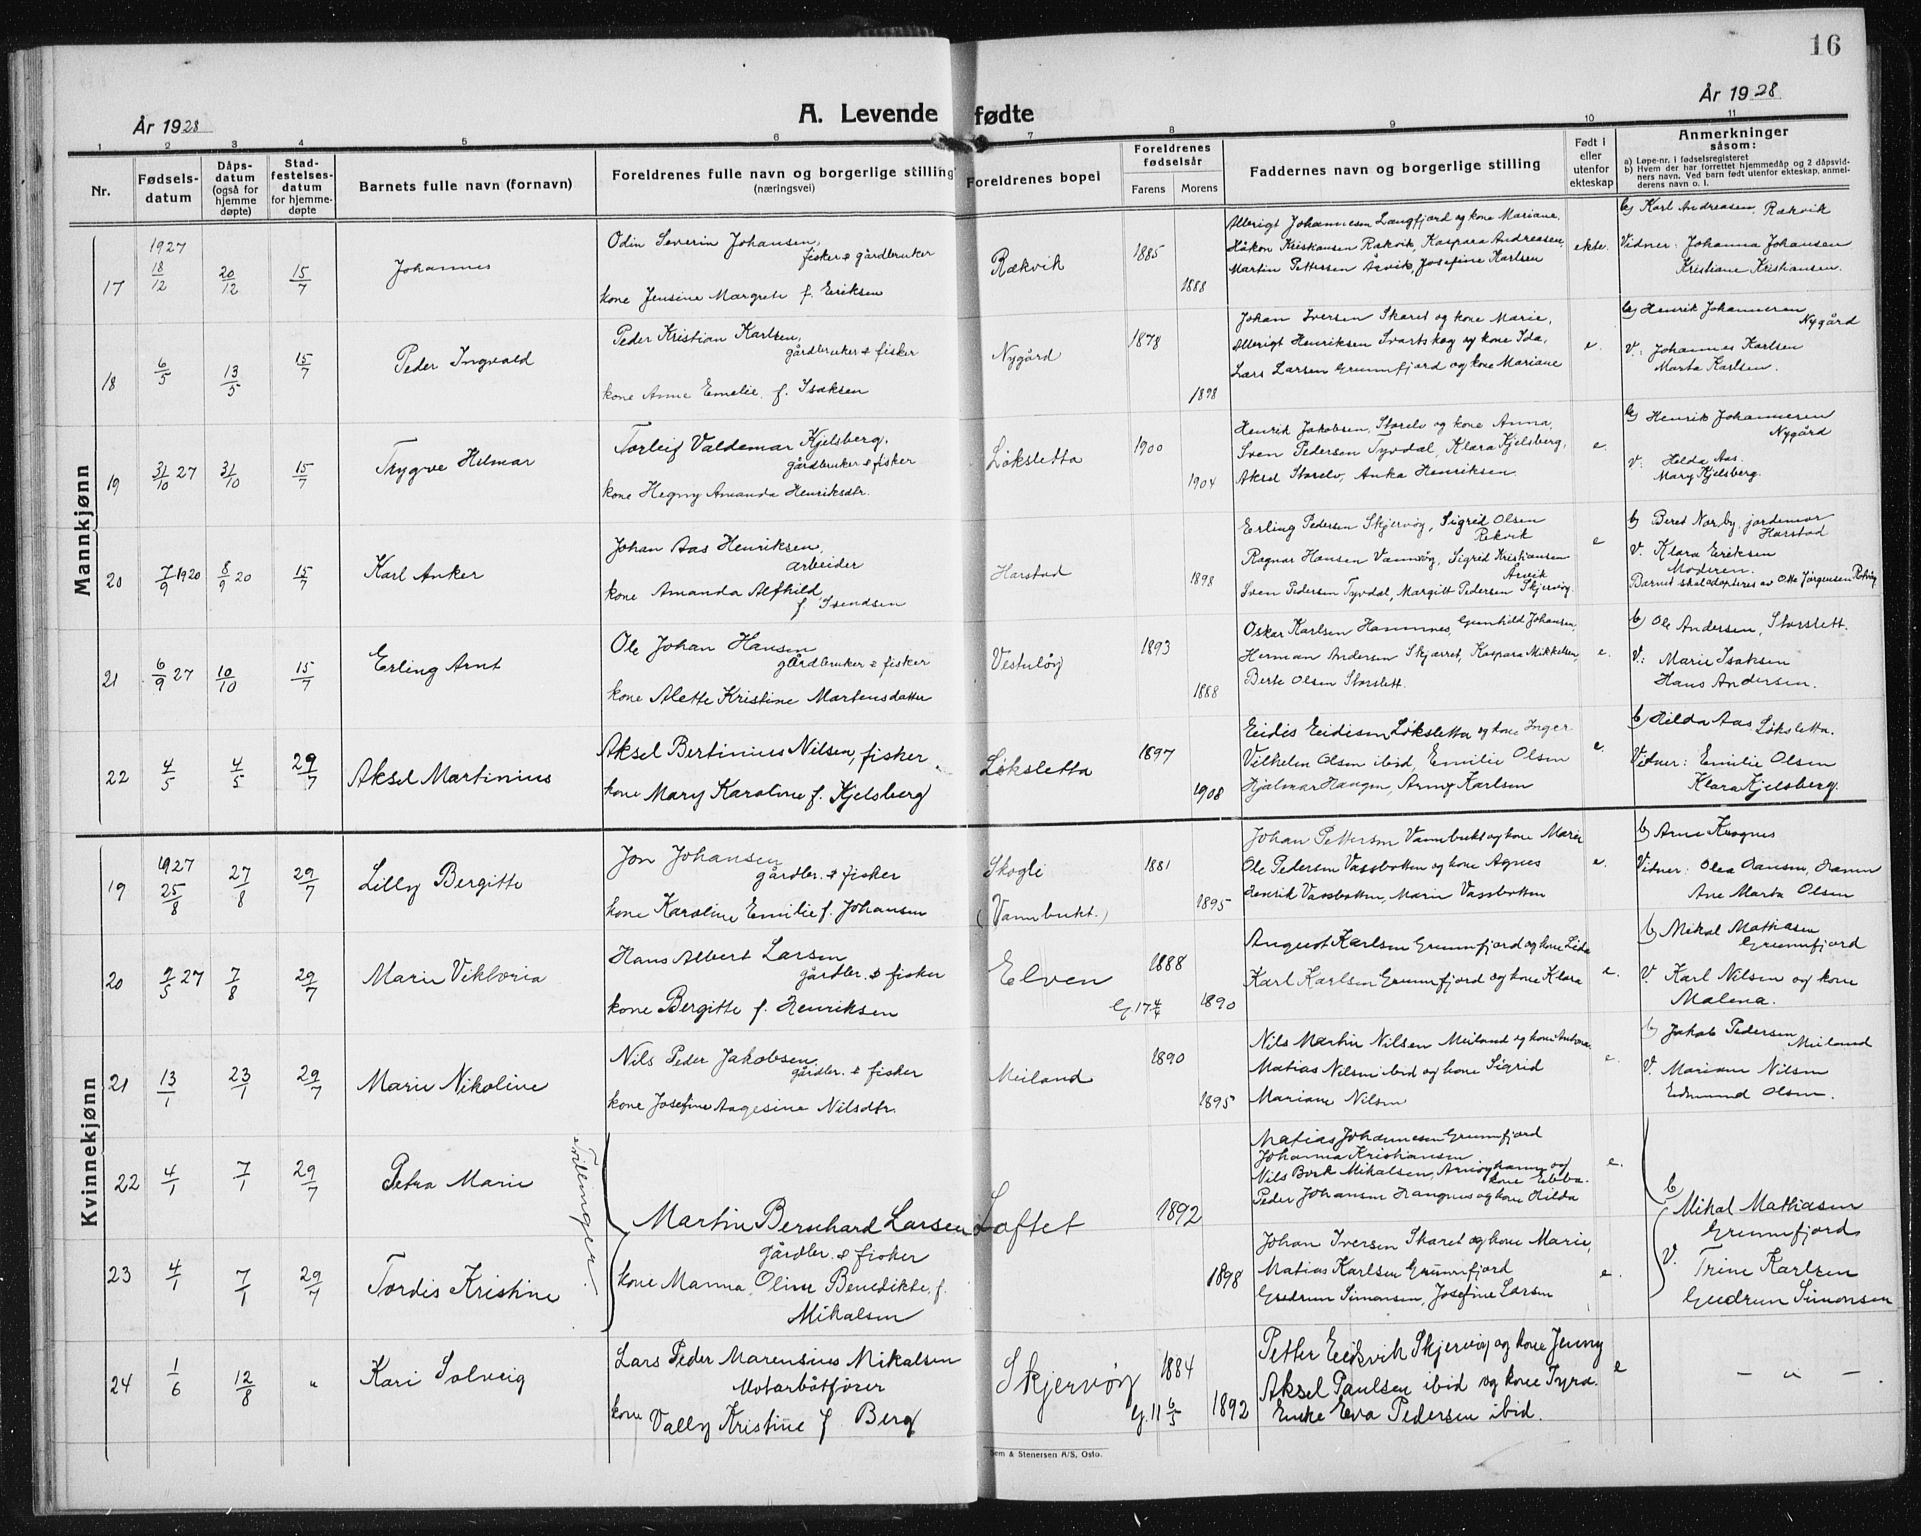 16
År 1928
A. Levende fødte
År 1928
1 2 3 4 5 6 7 8 9 10 11
Nr.
Fødsels-
datum
Dåps-
datum
(også for
hjemme
døpte)
Stad-
festelses-
datum
for hjemme-
døpte
Barnets fulle navn (fornavn)
Foreldrenes fulle navn og borgerlige stilling
(næringsvei)
Foreldrenes bopel
Foreldrenes
fødselsår
Farens
Morens
Faddernes navn og borgerlige stilling
Født i
eller
utenfor
ekteskap
Anmerkninger
såsom:
a) Løpe-nr. i fødselsregisteret
b) Hvem der har forrettet hjemmedåp og 2 dåpsvid-
ners navn. Ved barn født utenfor ekteskap, anmel-
derens navn o. l.
Mannkjønn
17
1927
18/12
20/12
15/7
Johannes
Odin Severin Johansen,
fisker & gårdbruker
kone Jensine Margrete f. Eriksen
Rækvik
1885
1888
Johannesen Langfjord og kone Mariane,
Håkon Kristiansen Rækvik, Kaspara Andreasen,
Martin Pettersen Årvik, Josefine Karlsen
ekte.
b) Karl Andreasen, Rækvik
Vidner: Johanna Johansen
Kristiane Kristiansen.
18
6/5
13/5
15/7
Peder Ingvald
Peder Kristian Karlsen,
gårdbruker & fisker
kone Anne Emelie, f. Isaksen
Nygård
1878
1898
Johan Iversen Skaret og kone Marie,
Henriksen Svartskog og kone Ida,
Lars Larsen Grunnfjord og kone Mariane
e.
b) Henrik Johannesen
Nygård
V: Johannes Karlsen
Marta Karlsen.
19
31/10 27
31/10
15/7
Trygve Hilmar
Torleif Valdemar Kjelsberg,
gårdbruker & fisker
kone Hegny Amanda Henriksdtr.
Løksletta
1900
1904
Henrik Jakobsen, Storelv og kone Anna,
Sven Pedersen Tyvdal, Klara Kjelsberg,
Aksel Storelv, Anka Henriksen.
e.
b) Henrik Johannesen
Nygård
V: Helda Aas.
Mary Kjelsberg.
20
7/9 1920
8/9 20
15/7
Karl Anker
Johan Aas Henriksen,
arbeider
kone Amanda Alfhild,
f. Isendsen
Harstad
1898
Erling Pedersen Skjervøy, Sigrid Olsen
Rekvik
Ragnar Hansen Vannvåg, Sigrid Kristiansen
Årvik
Sven Pedersen Tyvdal, Margitt Pedersen Skjervøy.
e
b) Beret Norby, jordemor
Harstad
V. Klara Eriksen
Moderen.
Barnet skal adopteres av Otto Jørgensen
21
6/9 27
10/10
15/7
Erling Arnt
Ole Johan Hansen
gårdbruker & fisker
kone Alette Kristine Martensdatter
1893
1888
Oskar Karlsen Hamnnes, Gunhild Johansen,
Herman Andersen Skjærret, Kaspara Mikkelsen,
Berte Olsen Storslett.
e.
b) Ole Andersen, Storslett.
V: Marie Isaksen
Hans Andersen.
22
4/5
4/5
29/7
Aksel Martinius
Aksel Bertinius Nilsen, fisker
kone Mary Karoline f. Kjelsberg
Løksletta
1897
1908
Eidis Eidissen Løksletta og kone Inger
Vilhelm Olsen ibid, Emilie Olsen
Hjalmar Haugen, Arny Karlsen
e.
b) Hilda Aas Løksletta.
Vidner: Emilie Olsen
Klara Kjelsberg.
Kvinnekjønn
19
1927
25/8
27/8
29/7
Lilly Bergitte
Jon Johansen
gårdbr. & fisker
kone Karoline Emilie f. Johansen
Skogli
(Vannbukt.)
1881
1895
Johan Pettersen Vannbukt og kone Marie
Ole Pedersen Vassbotten og kone Agnes
Henrik Vassbotten, Marie Vassbotten
e.
b) Arne
Vidner: Olea Hansen,
Ane Marta Olsen
20
9/5 27
7/8
29/7
Marie Viktoria
Hans Albert Larsen
gårdbr. & fisker
kone Bergitte f. Henriksen
Elven
G 17 4/4
1888
1890
August Karlsen Grunnfjord og kone Lida
Karl Karlsen Grunnfjord og kone Klara
e.
b) Mikal Mathiasen
Grunnfjord
V. Karl Nilsen og kone
Malena.
21
13/1
23/1
29/7
Marie Nikoline
Nils Peder Jakobsen
gårdbr. & fisker
kone Josefine Aagesine Nilsdtr.
Meiland
1890
1895
Nils Martin Nilsen Meiland og kone
Matias Nilsen ibid og kone Sigrid
Mariane Nilsen
e.
b) Jakob Pedersen
Meiland
V. Mariane Nilsen
Edmund Olsen.
22
4/1
7/1
29/7
Petra Marie
Tvillinger.
Martin Bernhard Larsen
gårdbr. & fisker
kone Manna Oline Benedikte f.
Mikalsen
Loftet
1892
1898
Matias Johannesen Grunnfjord
Johanna Kristiansen
Nils Bork Mikalsen, Arnøyhamn og
kone Ebba.
Peder Johansen Haugnes og kone Hilda
e.
b
Mikal Mathiasen
Grunnfjord
V. Trine Karlsen
Gudrun Simonsen
23
4/1
7/1
29/7
Tordis Kristine
Johan Iversen Skaret og kone Marie,
Matias Karlsen Grunnfjord
Gudrun Simonsen, Josefine Larsen
e.
24
1/6
12/8
"
Kari Solveig
Lars Peder Marensius Mikalsen
Motorbåtfører
kone Vally Kristine f. Berg
Skjervøy
G. 11 6/5
1884
1892
Petter Eidsvik Skjervøy og kone Jenny
Aksel Paulsen ibid og kone Tyra.
Enke Eva Pedersen ibid.
e
– " –
Sem & Stenersen A/S, Oslo.